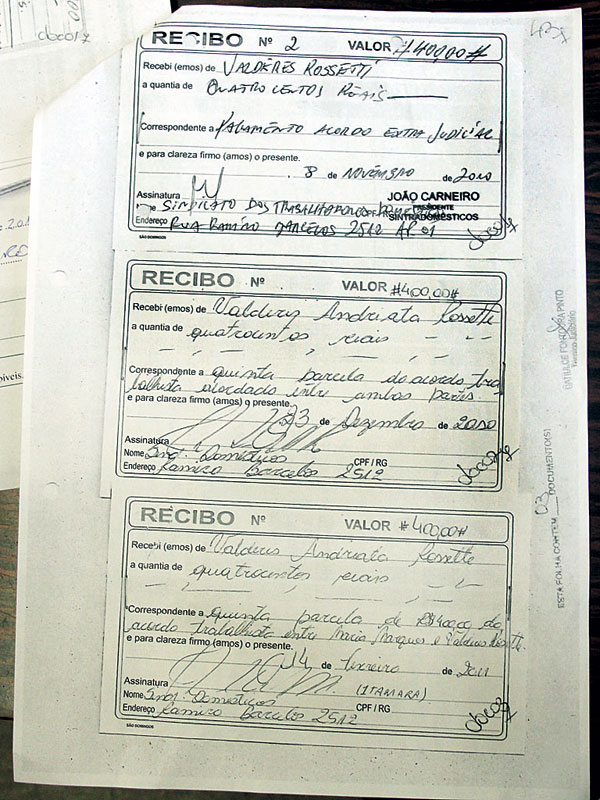 doc017
RECIBO Nº 2 VALOR #400,00#
Recebi (emos) de VALDERES ROSSETTI
a quantia de QUATROCENTOS REAIS
Correspondente a PAGAMENTO ACORDO EXTRA JUDICIAL
e para clareza firmo (amos) o presente.
8 de NOVEMBRO de 2010
Assinatura
JOÃO CARNEIRO
PRESIDENTE
SINTRADOMESTICOS
SINDICATO DOS TRABALHADORES
Endereço RUA RAMIRO BARCELOS 2512 AP 01
SÃO DOMINGOS
RECIBO Nº VALOR #400,00#
Recebi (emos) de Valderis Andriata Rossette
a quantia de quatrocentos reais
Correspondente a quinta parcela do acordo tra
balhista acordado entre ambas partes.
e para clareza firmo (amos) o presente.
23 de Dezembro de 2010
Assinatura
Nome Sind. Domésticos CPF / RG
Endereço Ramiro Barcelos 2512
RECIBO Nº VALOR #400,00#
Recebi (emos) de Valderis Andriata Rossette
a quantia de quatrocentos reais
Correspondente a quinta parcela de R$400,00 do
acordo trabalhista entre Maria Marques e Valderis Rossette.
e para clareza firmo (amos) o presente.
14 de Fevereiro de 2011
Assinatura (ITAMARA)
Nome Sind. Domésticos
Endereço Ramiro Barcelos 2512 CPF / RG
SÃO DOMINGOS
ESTA FOLHA CONTEM 03 DOCUMENTO(S)